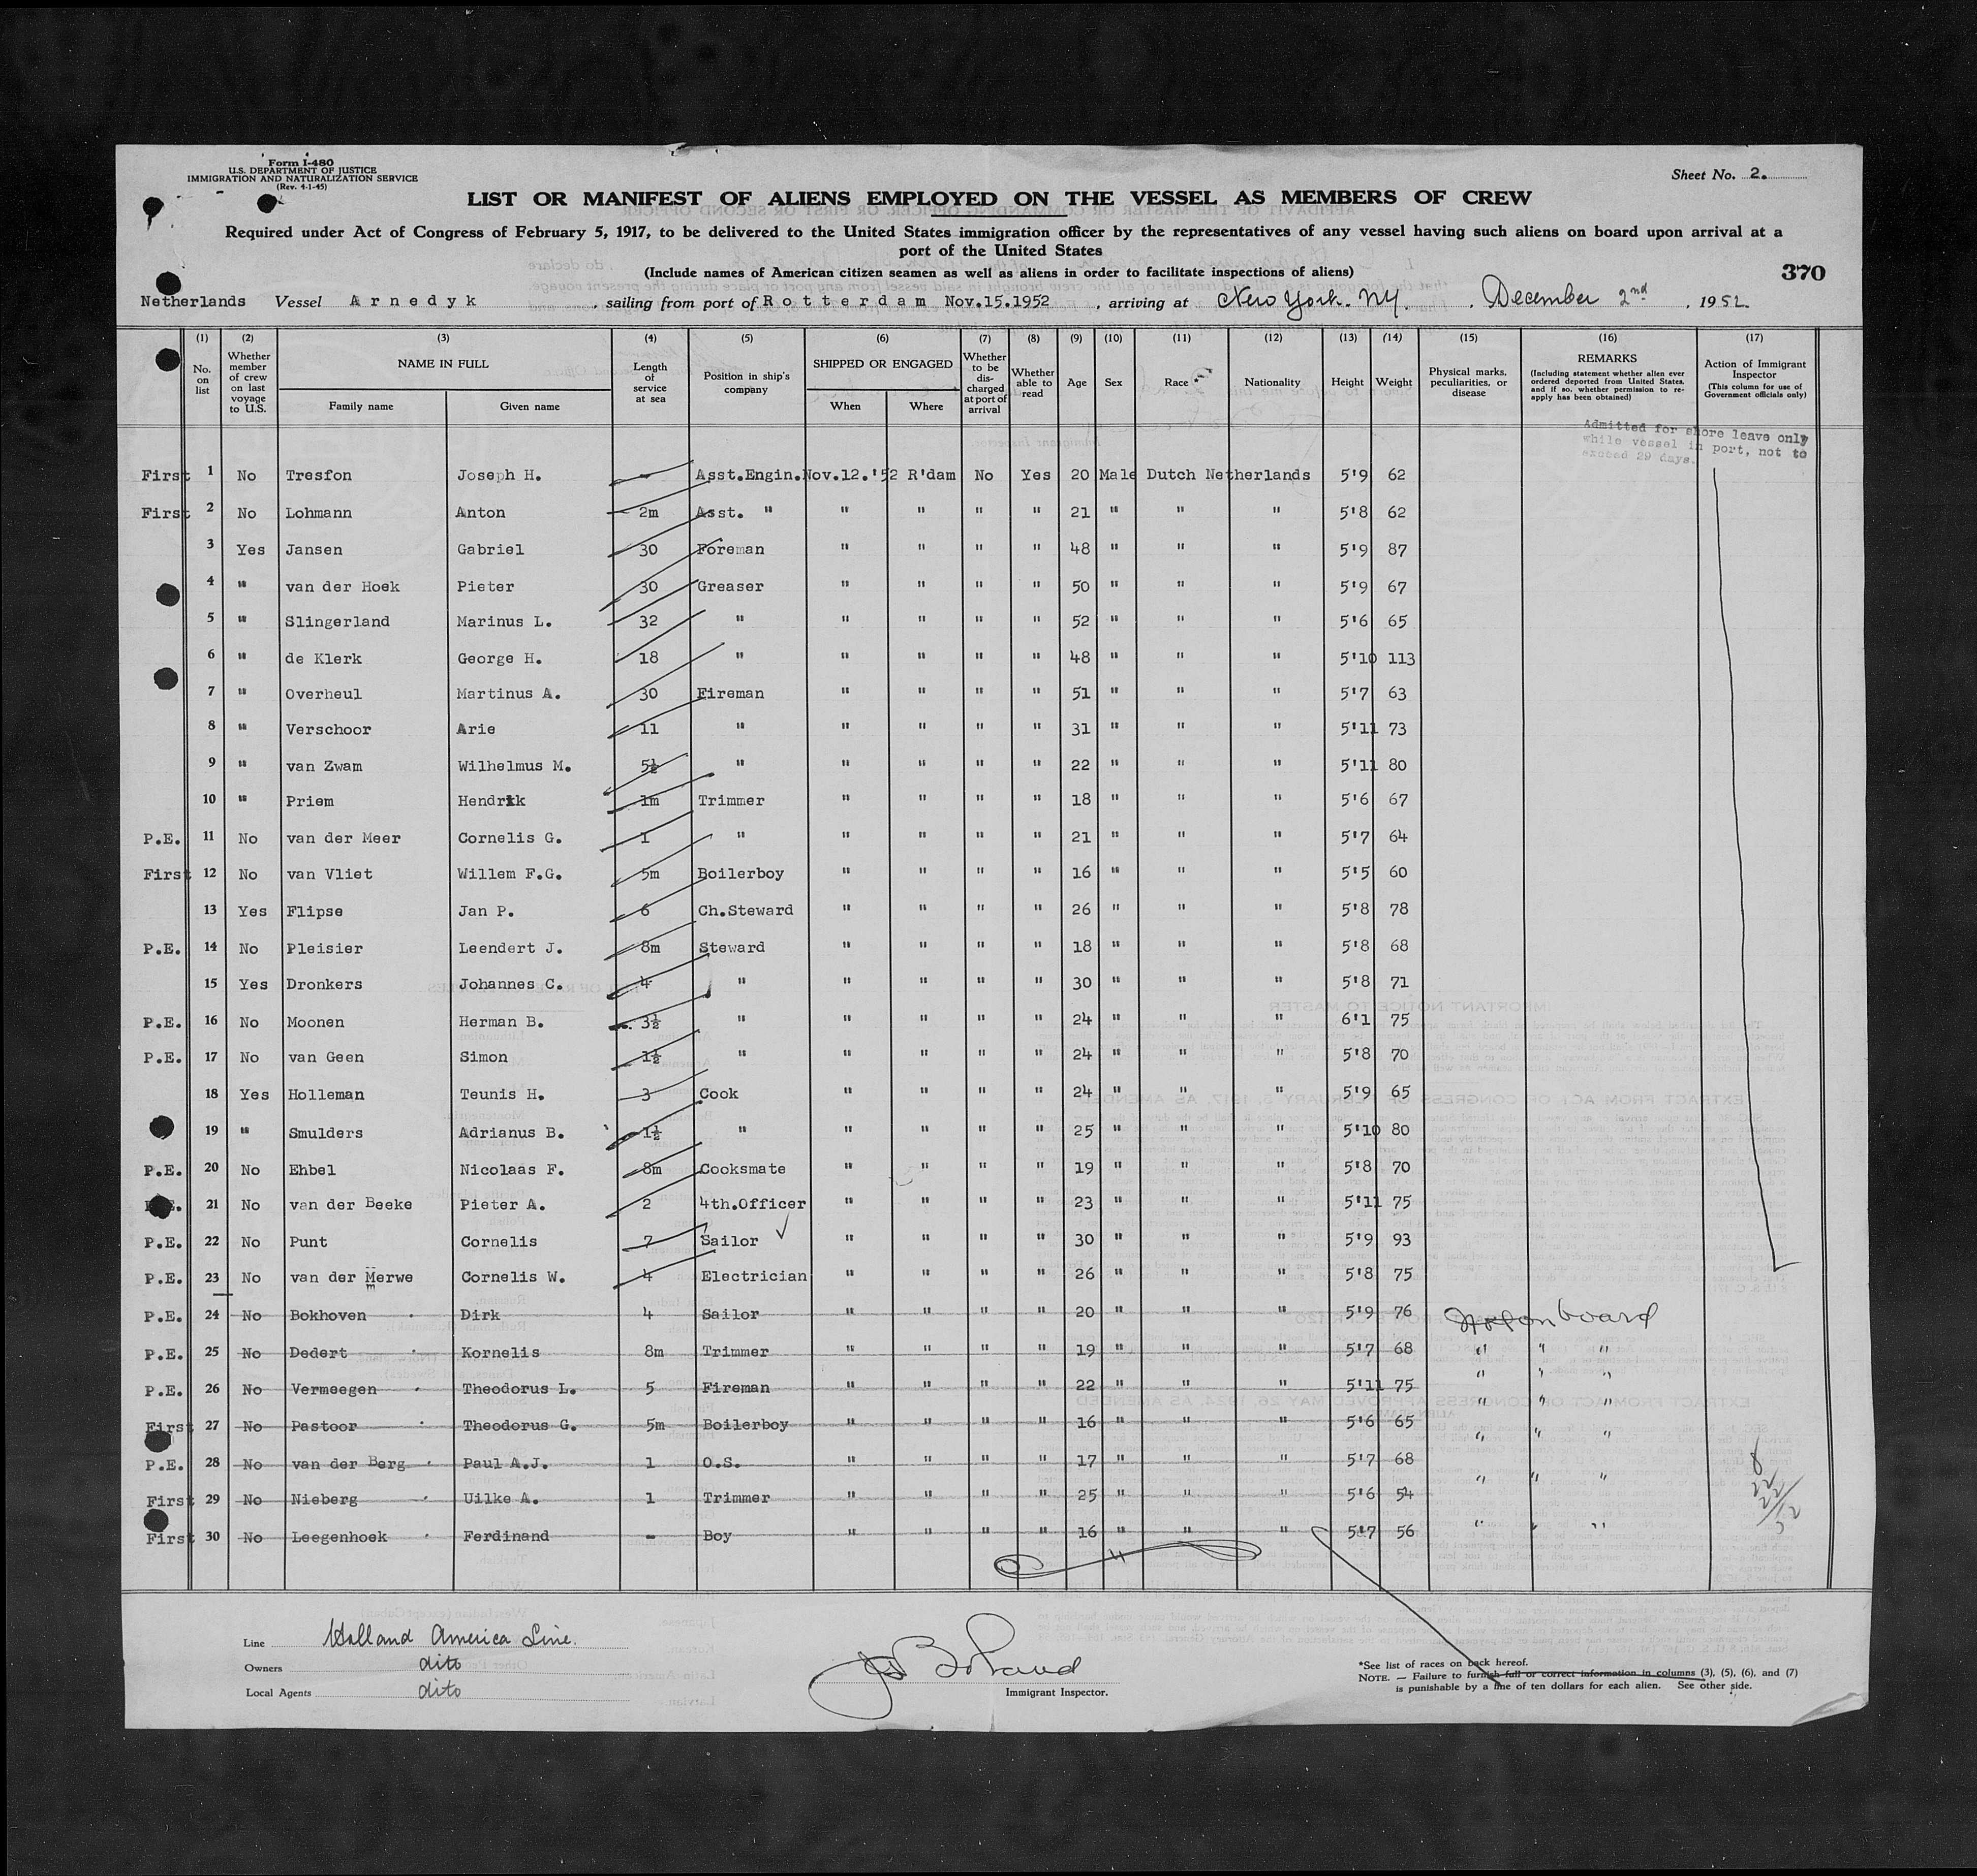 Form I-480
U.S. DEPARTMENT OF JUSTICE
IMMIGRATION AND NATURALIZATION SERVICE
(Rev. 4-1-45)
Sheet No. 2.
LIST OR MANIFEST OF ALIENS EMPLOYED ON THE VESSEL AS MEMBERS OF CREW
Required under Act of Congress of February 5, 1917, to be delivered to the United States immigration officer by the representatives of any vessel having such aliens on board upon arrival at a
port of the United States
(Include names of American citizen seamen as well as aliens in order to facilitate inspections of aliens)
370
Netherlands Vessel Arnedyk, sailing from port of Rotterdam Nov.15.1952, arriving at New York. NY., December 2nd, 1952
(1) (2) (3) (4) (5) (6) (7) (8) (9) (10) (11) (12) (13) (14) (15) (16) (17)
No. on list
Whether member of crew on last voyage to U.S.
NAME IN FULL
Family name
Given name
Length of service at sea
Position in ship's company
SHIPPED OR ENGAGED
When
Where
Whether to be discharged at port of arrival
Whether able to read
Age
Sex
Race *
Nationality
Height
Weight
Physical marks, peculiarities, or disease
REMARKS
(Including statement whether alien ever ordered deported from United States, and if so, whether permission to reapply has been obtained)
Action of Immigrant Inspector
(This column for use of Government officials only)
Admitted for shore leave only
while vessel in port, not to
exceed 29 days.
First 1 No Tresfon Joseph H. - Asst.Engin. Nov.12.'52 R'dam No Yes 20 Male Dutch Netherlands 5'9 62
First 2 No Lohmann Anton 2m Asst. " " " " " 21 " " " 5'8 62
3 Yes Jansen Gabriel 30 Foreman " " " " 48 " " " 5'9 87
4 " van der Hoek Pieter 30 Greaser " " " " 50 " " " 5'9 67
5 " Slingerland Marinus L. 32 " " " " " 52 " " " 5'6 65
6 " de Klerk George H. 18 " " " " " 48 " " " 5'10 113
7 " Overheul Martinus A. 30 Fireman " " " " 51 " " " 5'7 63
8 " Verschoor Arie 11 " " " " " 31 " " " 5'11 73
9 " van Zwam Wilhelmus M. 5½ " " " " " 22 " " " 5'11 80
10 " Priem Hendrik 1m Trimmer " " " " 18 " " " 5'6 67
P.E. 11 No van der Meer Cornelis G. 1 " " " " " 21 " " " 5'7 64
First 12 No van Vliet Willem F.G. 5m Boilerboy " " " " 16 " " " 5'5 60
13 Yes Flipse Jan P. 6 Ch.Steward " " " " 26 " " " 5'8 78
P.E. 14 No Pleisier Leendert J. 8m Steward " " " " 18 " " " 5'8 68
15 Yes Dronkers Johannes C. 4 " " " " " 30 " " " 5'8 71
P.E. 16 No Moonen Herman B. 3½ " " " " " 24 " " " 6'1 75
P.E. 17 No van Geen Simon 1½ " " " " " 24 " " " 5'8 70
18 Yes Holleman Teunis H. 3 Cook " " " " 24 " " " 5'9 65
19 " Smulders Adrianus B. 1½ " " " " " 25 " " " 5'10 80
P.E. 20 No Ehbel Nicolaas F. 8m Cooksmate " " " " 19 " " " 5'8 70
P.E. 21 No van der Beeke Pieter A. 2 4th.Officer " " " " 23 " " " 5'11 75
P.E. 22 No Punt Cornelis 7 Sailor " " " " 30 " " " 5'9 93
P.E. 23 No van der Merwe Cornelis W. 4 Electrician " " " " 26 " " " 5'8 75
P.E. 24 No Bokhoven Dirk 4 Sailor " " " " 20 " " " 5'9 76 Not on board
P.E. 25 No Dedert Kornelis 8m Trimmer " " " " 19 " " " 5'7 68 " " "
P.E. 26 No Vermeegen Theodorus L. 5 Fireman " " " " 22 " " " 5'11 75 " " "
First 27 No Pastoor Theodorus G. 5m Boilerboy " " " " 16 " " " 5'6 65 " " "
P.E. 28 No van der Berg Paul A.J. 1 O.S. " " " " 17 " " " 5'7 68 " " "
First 29 No Nieberg Uilke A. 1 Trimmer " " " " 25 " " " 5'6 54 " " "
First 30 No Leegenhoek Ferdinand - Boy " " " " 16 " " " 5'7 56 " " "
Line Holland America Line.
Owners dito
Local Agents dito
Immigrant Inspector.
*See list of races on back hereof.
NOTE. — Failure to furnish full or correct information in columns (3), (5), (6), and (7)
is punishable by a fine of ten dollars for each alien. See other side.